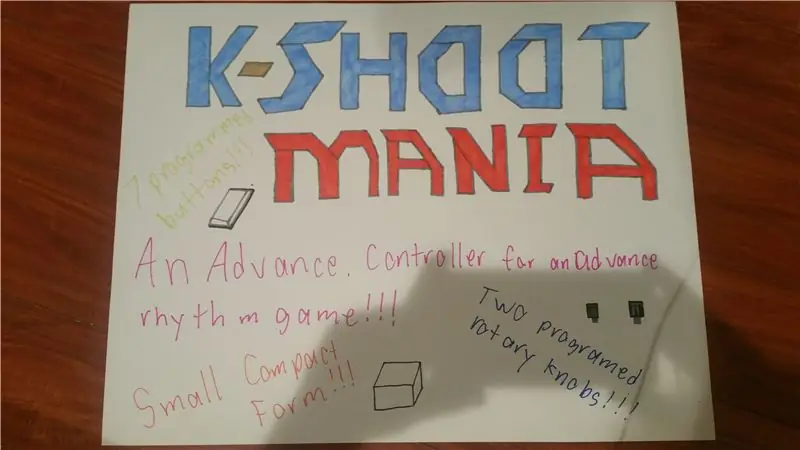 K-SHOOT
MANIA
7 programmed
buttons!!!
An Advance. Controller for an advance
rhythm game!!!
Two programed
rotary knobs!!!
Small Compact
Form!!!